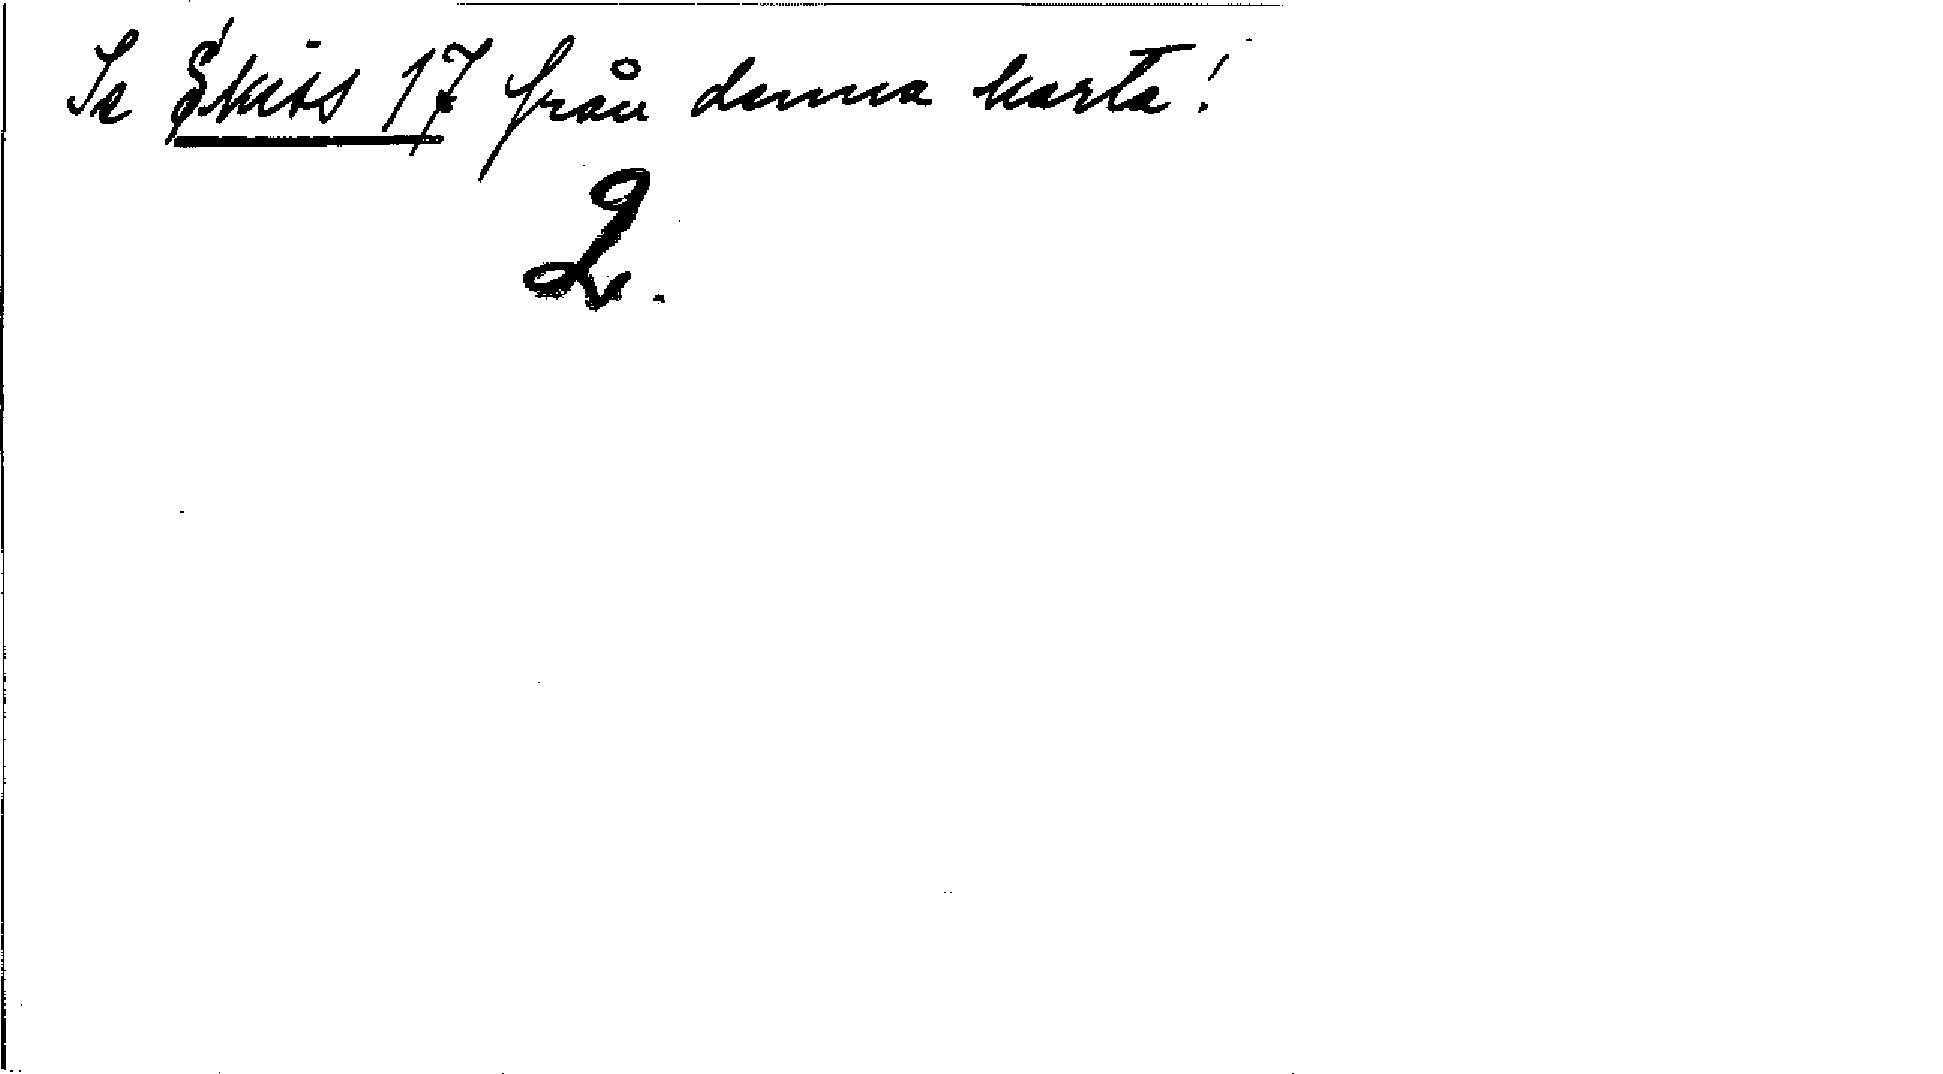 Se Skiss 17 från denna karta!
2.